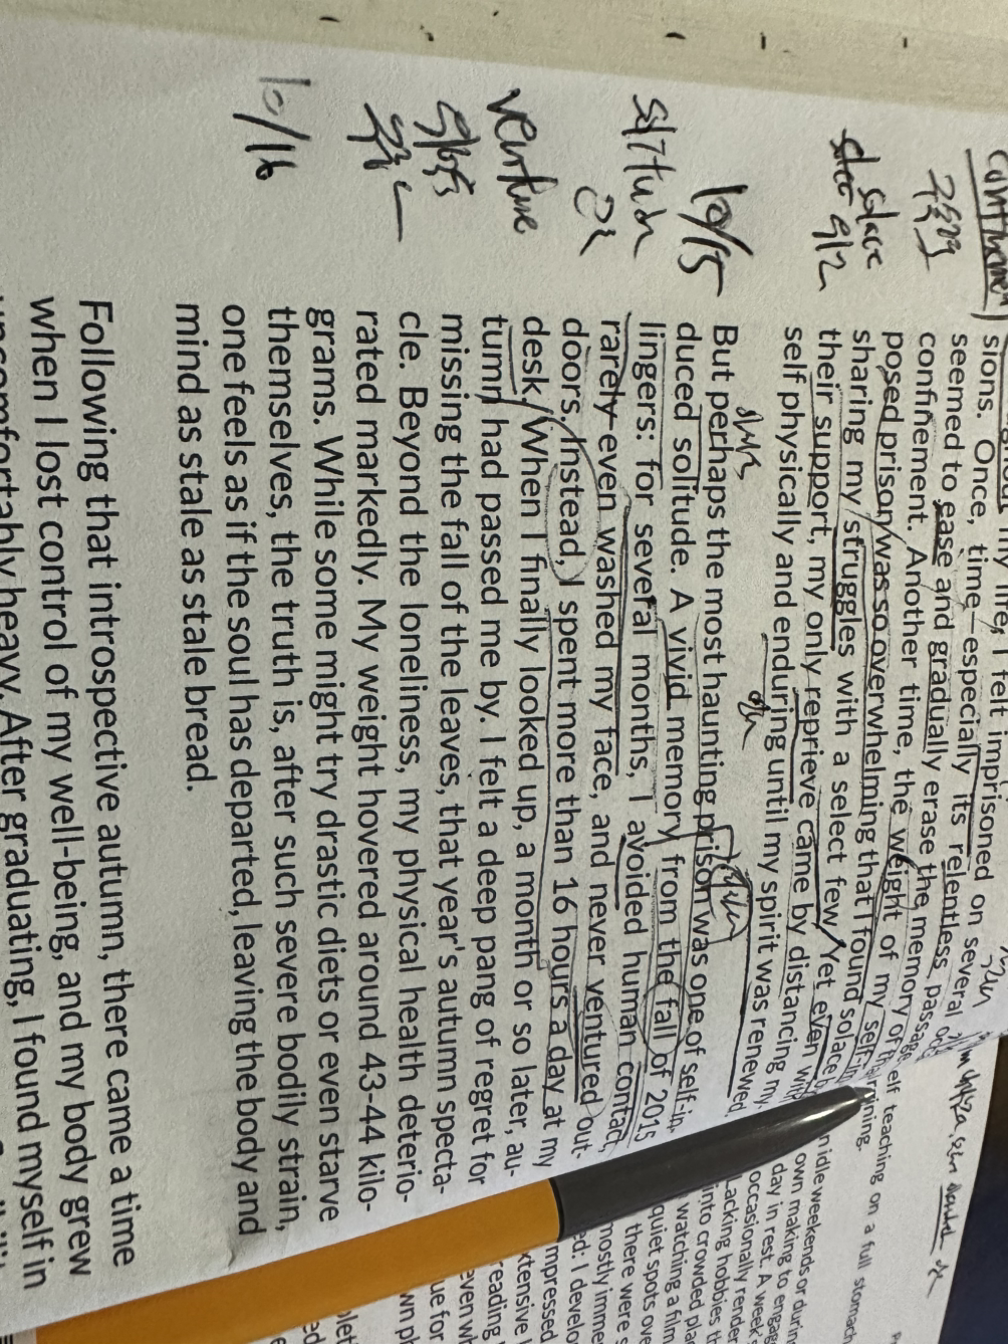 sions. Once, time—especially its relentless passage
seemed to ease and gradually erase the memory of
confinement. Another time, the weight of my self-im
posed prison was so overwhelming that I found solace
sharing my struggles with a select few. Yet even with
their support, my only reprieve came by distancing my
self physically and enduring until my spirit was renewed.
But perhaps the most haunting prison was one of self-in
duced solitude. A vivid memory from the fall of 2015
lingers: for several months, I avoided human contact,
rarely even washed my face, and never ventured out-
doors. Instead, I spent more than 16 hours a day at my
desk. When I finally looked up, a month or so later, au-
tumn had passed me by. I felt a deep pang of regret for
missing the fall of the leaves, that year's autumn specta-
cle. Beyond the loneliness, my physical health deterio-
rated markedly. My weight hovered around 43-44 kilo-
grams. While some might try drastic diets or even starve
themselves, the truth is, after such severe bodily strain,
one feels as if the soul has departed, leaving the body and
mind as stale as stale bread.
Following that introspective autumn, there came a time
when I lost control of my well-being, and my body grew
uncomfortably heavy. After graduating, I found myself in
solace
10/15
venture
10/16
elf teaching on a full stomac
ining.
n idle weekends or durin
own making to engag
day in rest. A week
occasionally render
Lacking hobbies th
into crowded pla
watching a film
quiet spots ove
there were s
mostly imme
ed: I develo
mpressed
xtensive
reading
even wh
ue for
wn pl